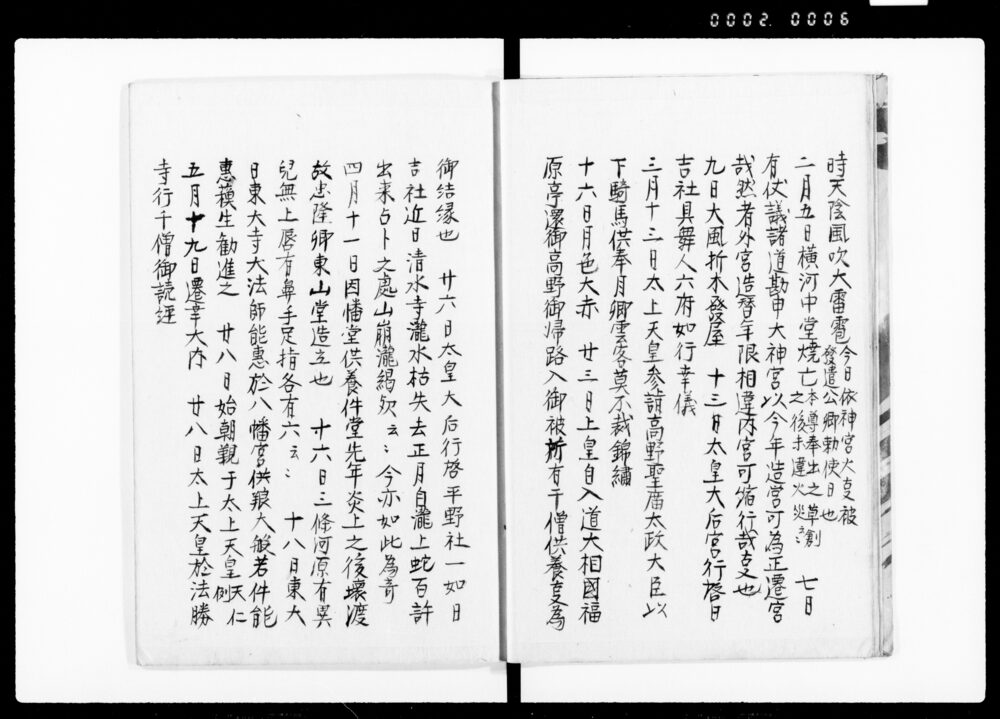 0002 0006
時天陰風吹大雷雹今日依神宮火㕝被
發遣公卿勅使日也
二月五日横河中堂燒亡本尊奉出之草創
之後未遭火災云〻 七日
有仗議諸道勘申大神宮以今年造宮可為正遷宮
哉然者外宮造替年限相違内宮可縮行哉㕝也
九日大風折木發屋 十三日太皇大后宮行啓日
吉社具舞人六府如行幸儀
三月十三日太上天皇参詣高野聖廣太政大臣以
下騎馬供奉月卿雲客莫不裁錦繡
十六日月色大赤 廿三日上皇自入道大相國福
原亭還御高野御帰路入御被所有千僧供養㕝為
御結縁也 廿六日太皇大后行啓平野社一如日
吉社近日清水寺瀧水枯失去正月自瀧上蛇百許
出来占卜之處山崩瀧緆欤云〻今亦如此為奇
四月十一日因幡堂供養件堂先年炎上之後壊渡
故忠隆卿東山堂造立也 十六日三條河原有異
兒無上唇有鼻手足指各有六云〻 十八日東大
日東大寺大法師能惠於八幡宮供粮大般若件能
惠蘓生勧進之 廿八日始朝覲于太上天皇天仁
例
五月十九日遷幸大内 廿八日太上天皇於法勝
寺行千僧御読経